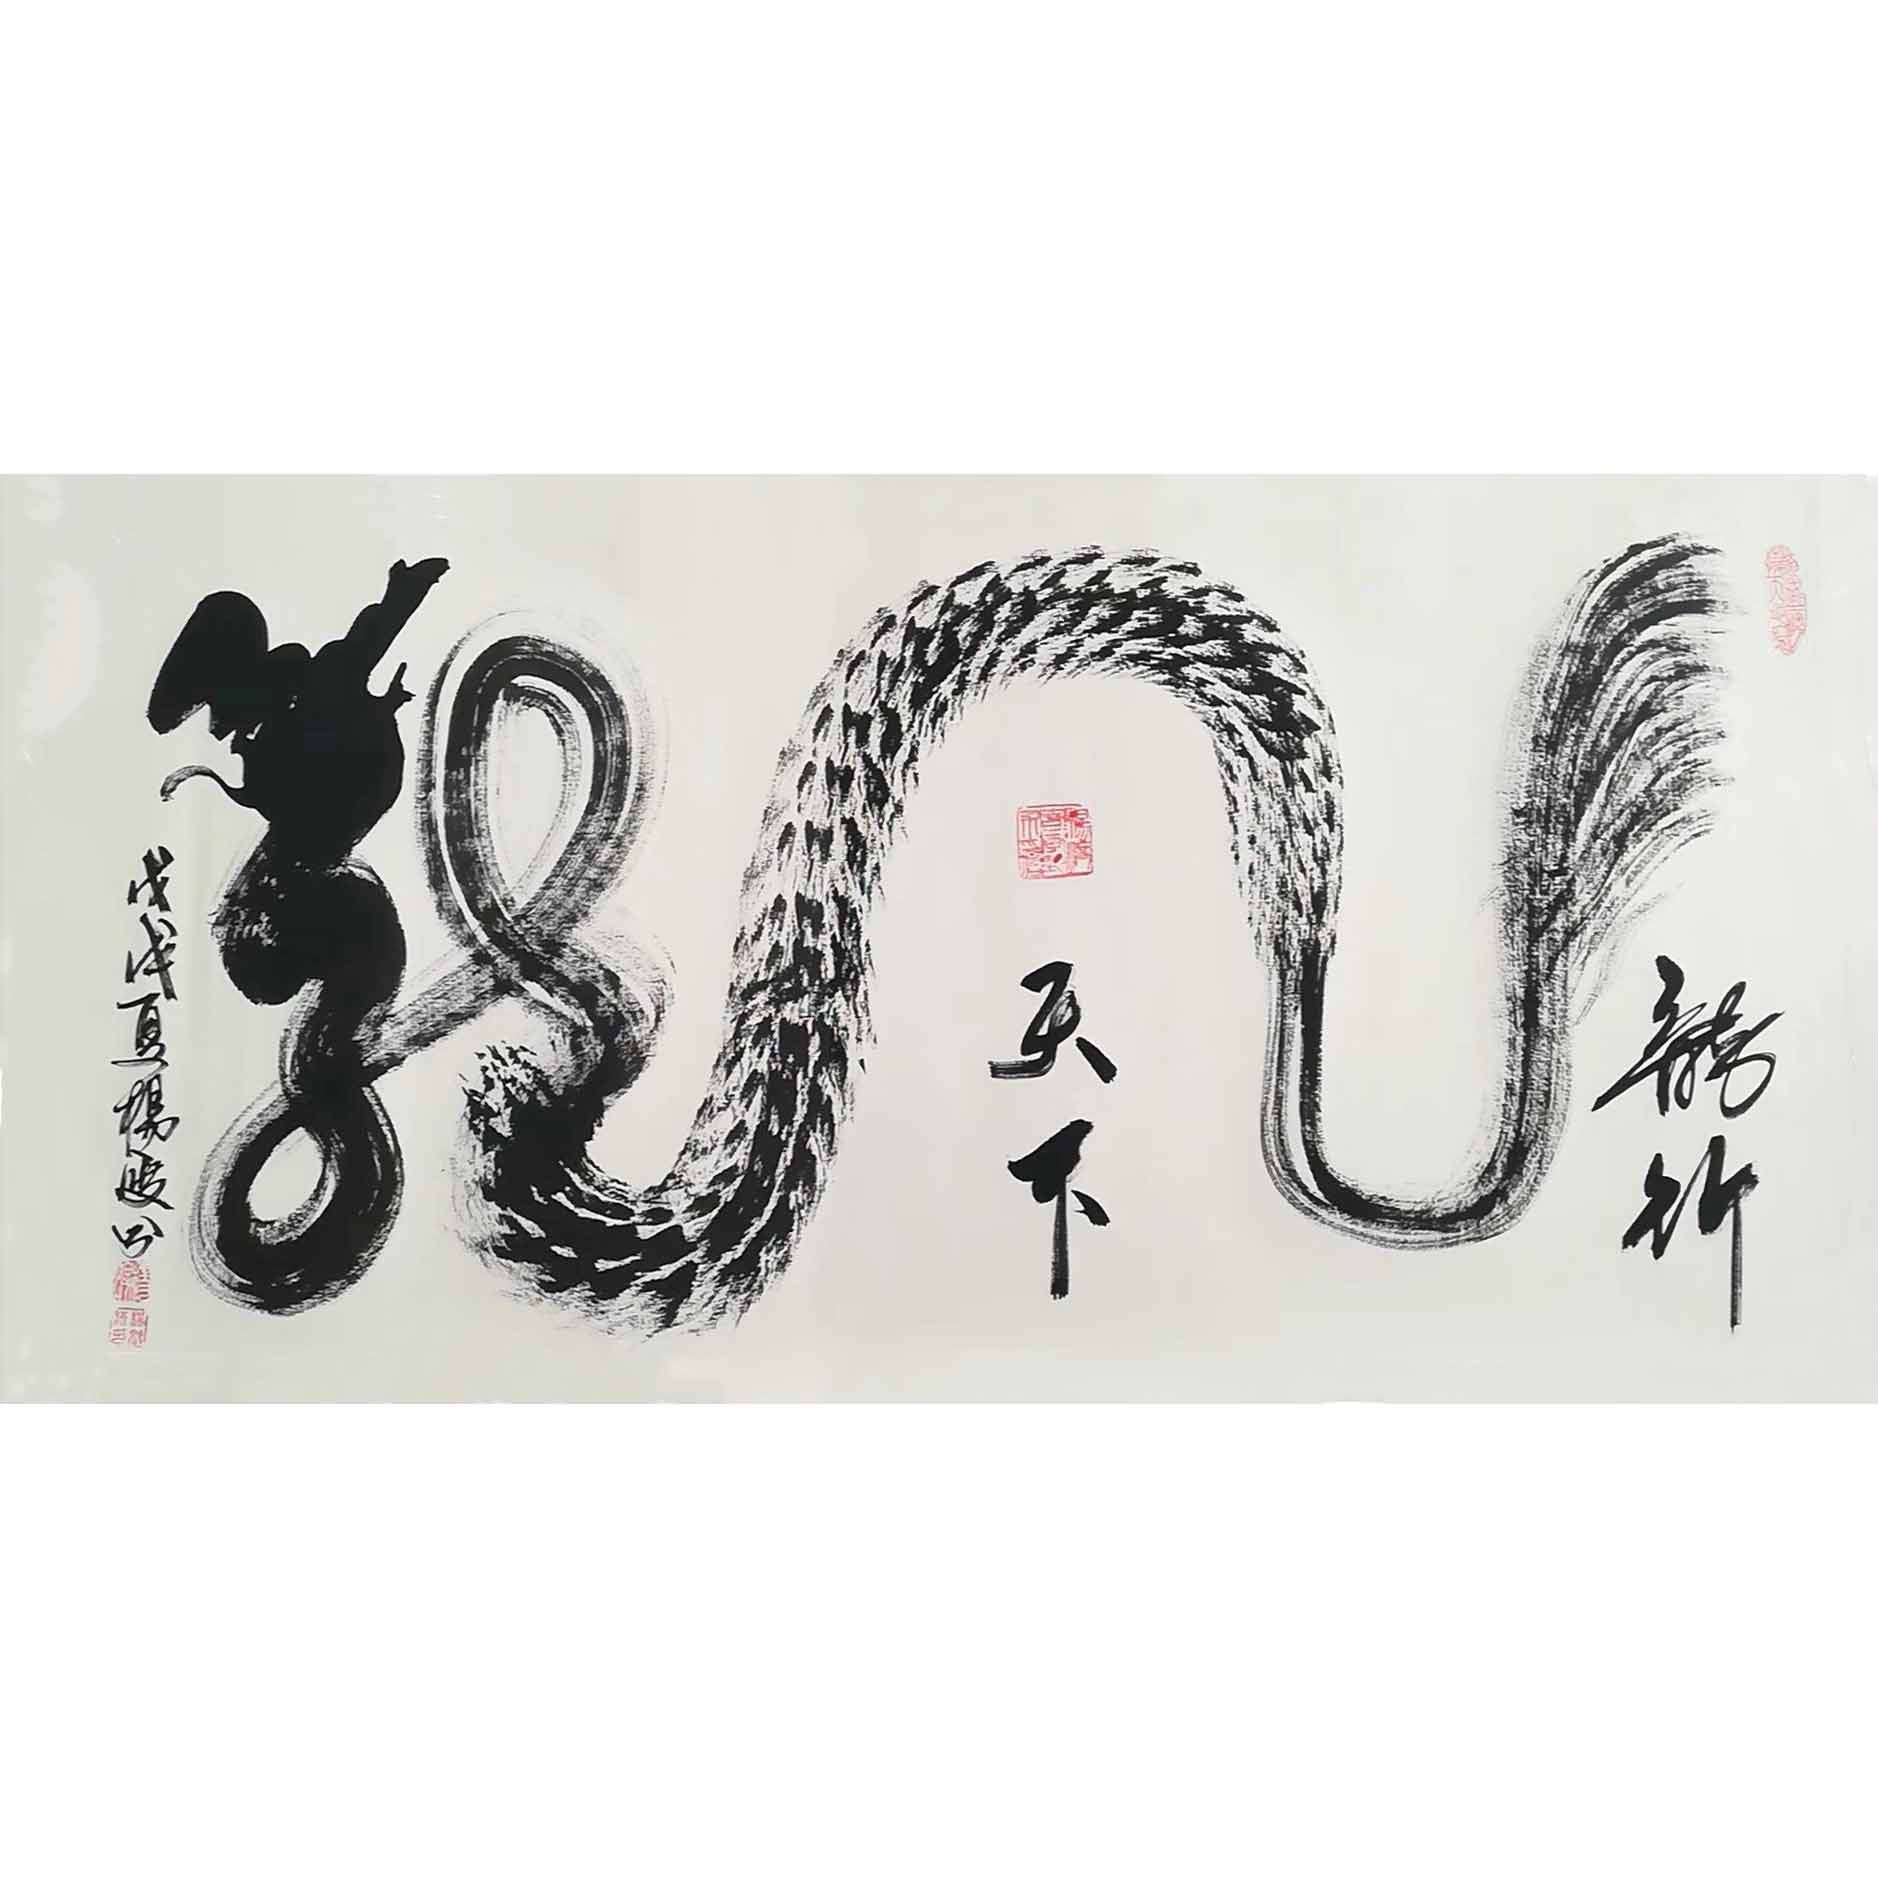 龍行
天下
戊戌夏楊波書